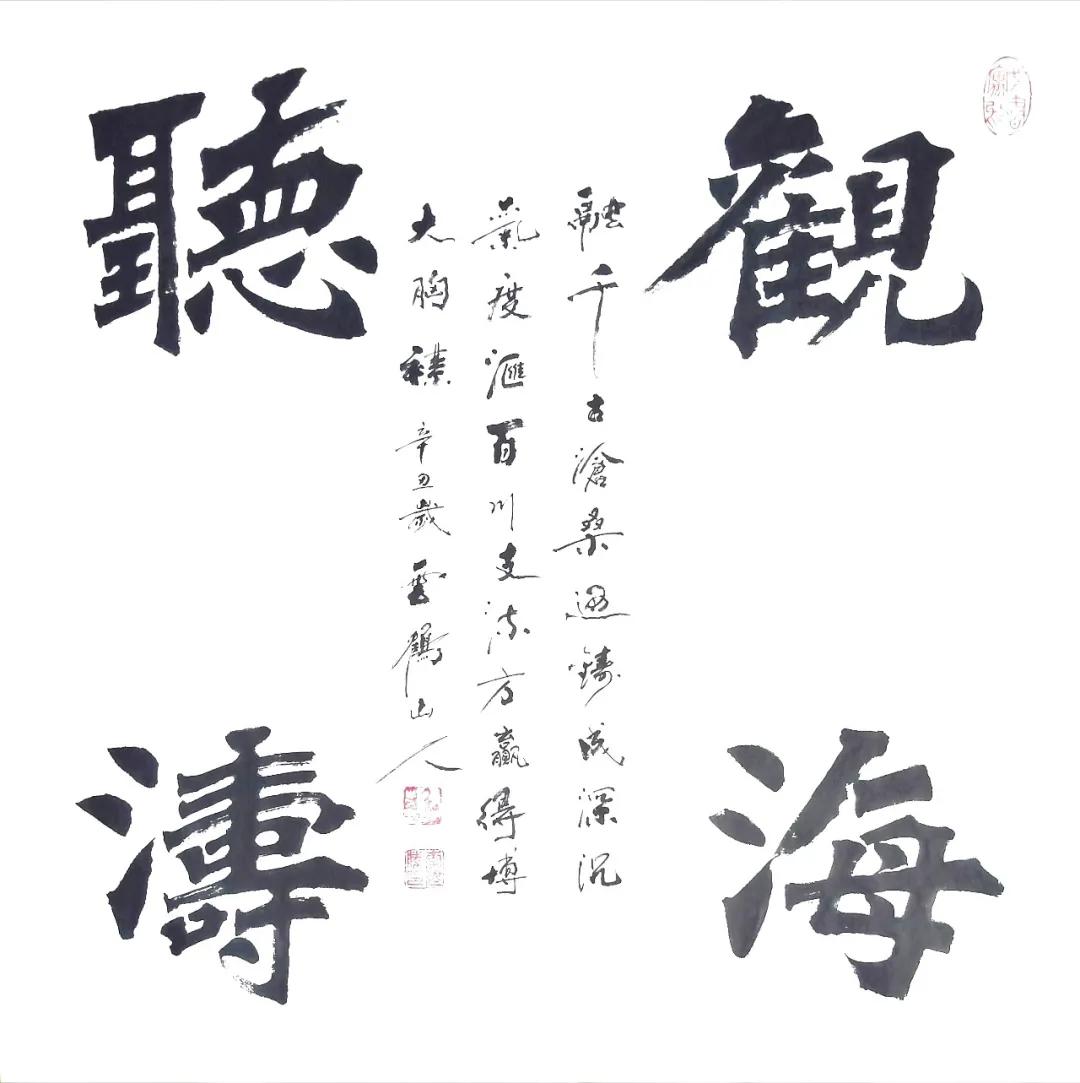 観海
聽濤
融千古滄桑迺鑄成深沉
氣度滙百川支流方贏得博
大胸襟 辛丑歲 雲鶴山人